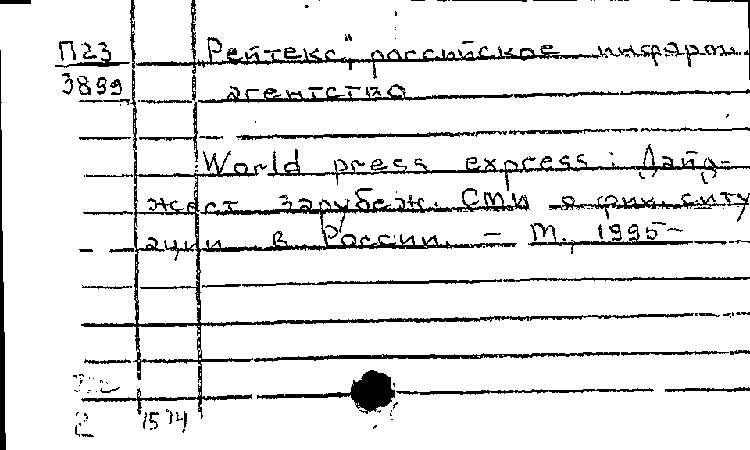 П23 Рейтекс", российское информ.
3899 агентство
World press express: Дайд-
жест зарубеж. СМИ о фин. ситу
ации в России. - М., 1995-
2 1574